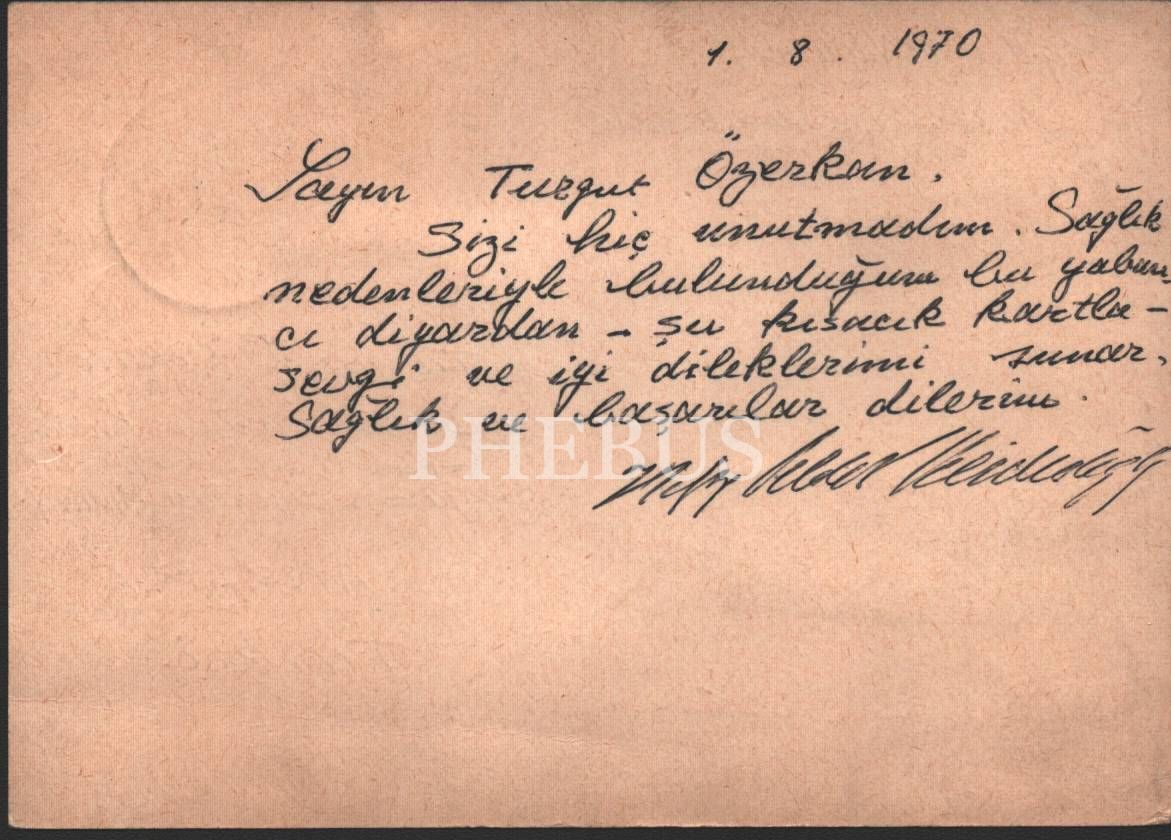 1. 8. 1970
Sayın Turgut Özerkan.
Sizi hiç unutmadım. Sağlık
nedenleriyle bulunduğum bu yaban
cı diyardan - şu kısacık kartla -
sevgi ve iyi dileklerimi sunar.
Sağlık ve başarılar dilerim.
PHEBUS